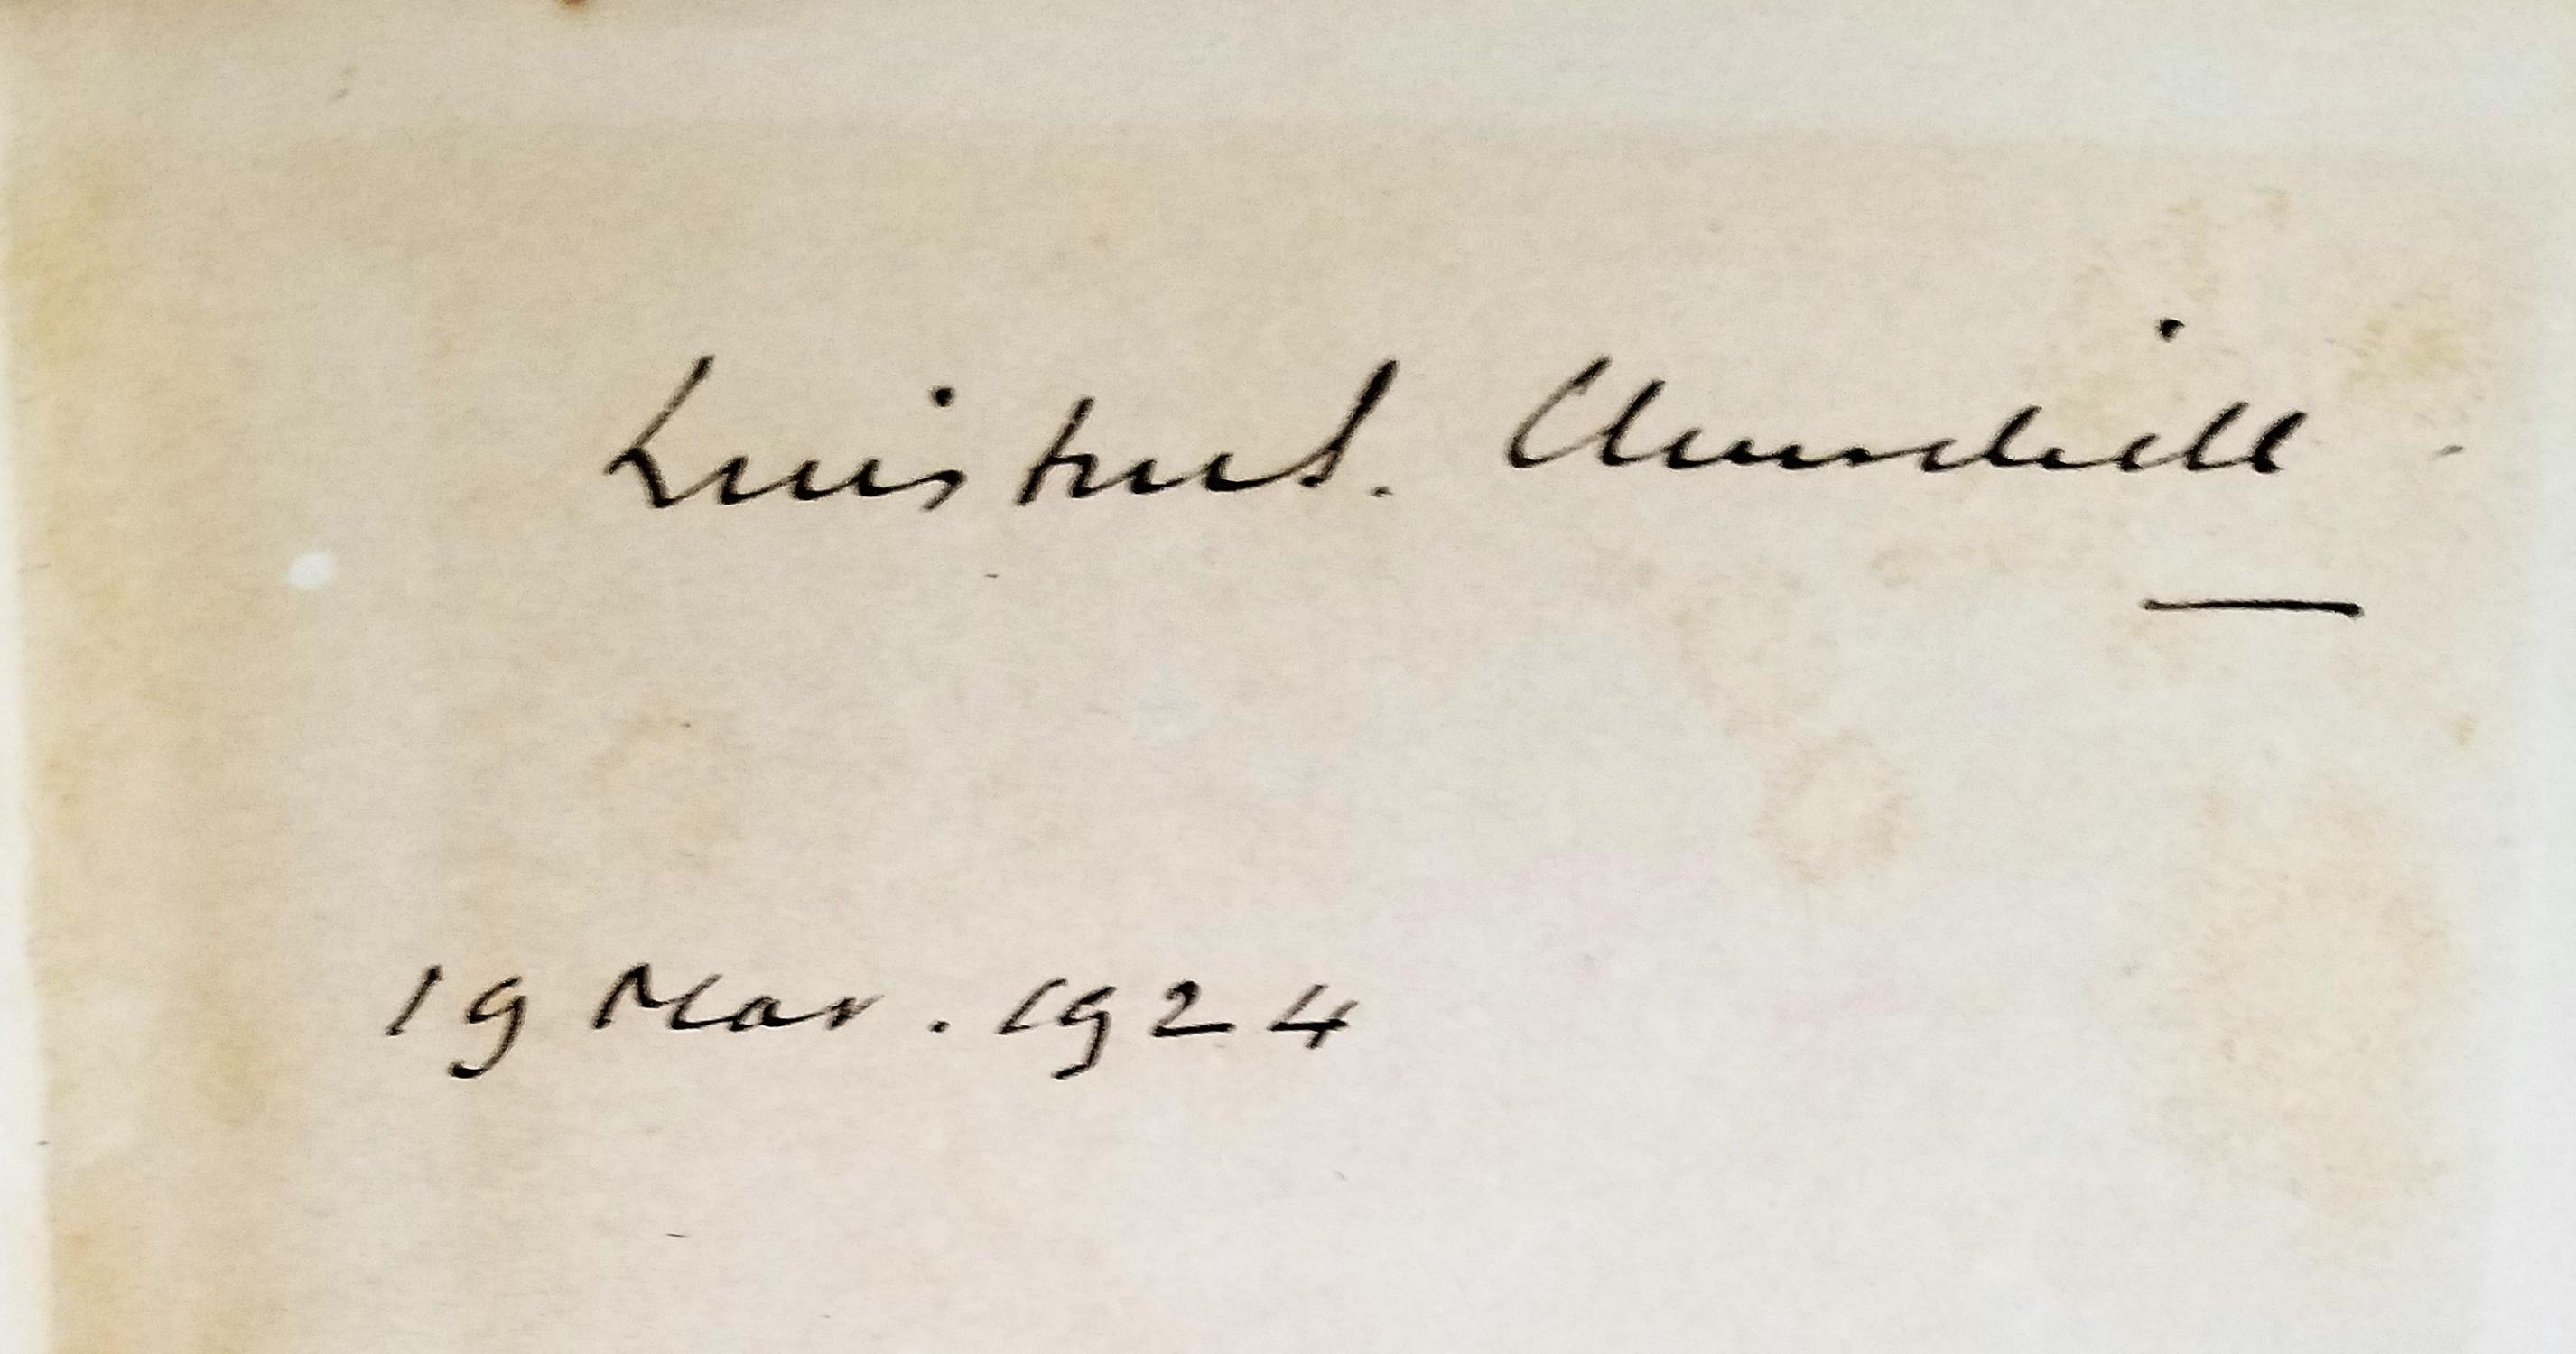 Winston S. Churchill
19 Mar. 1924